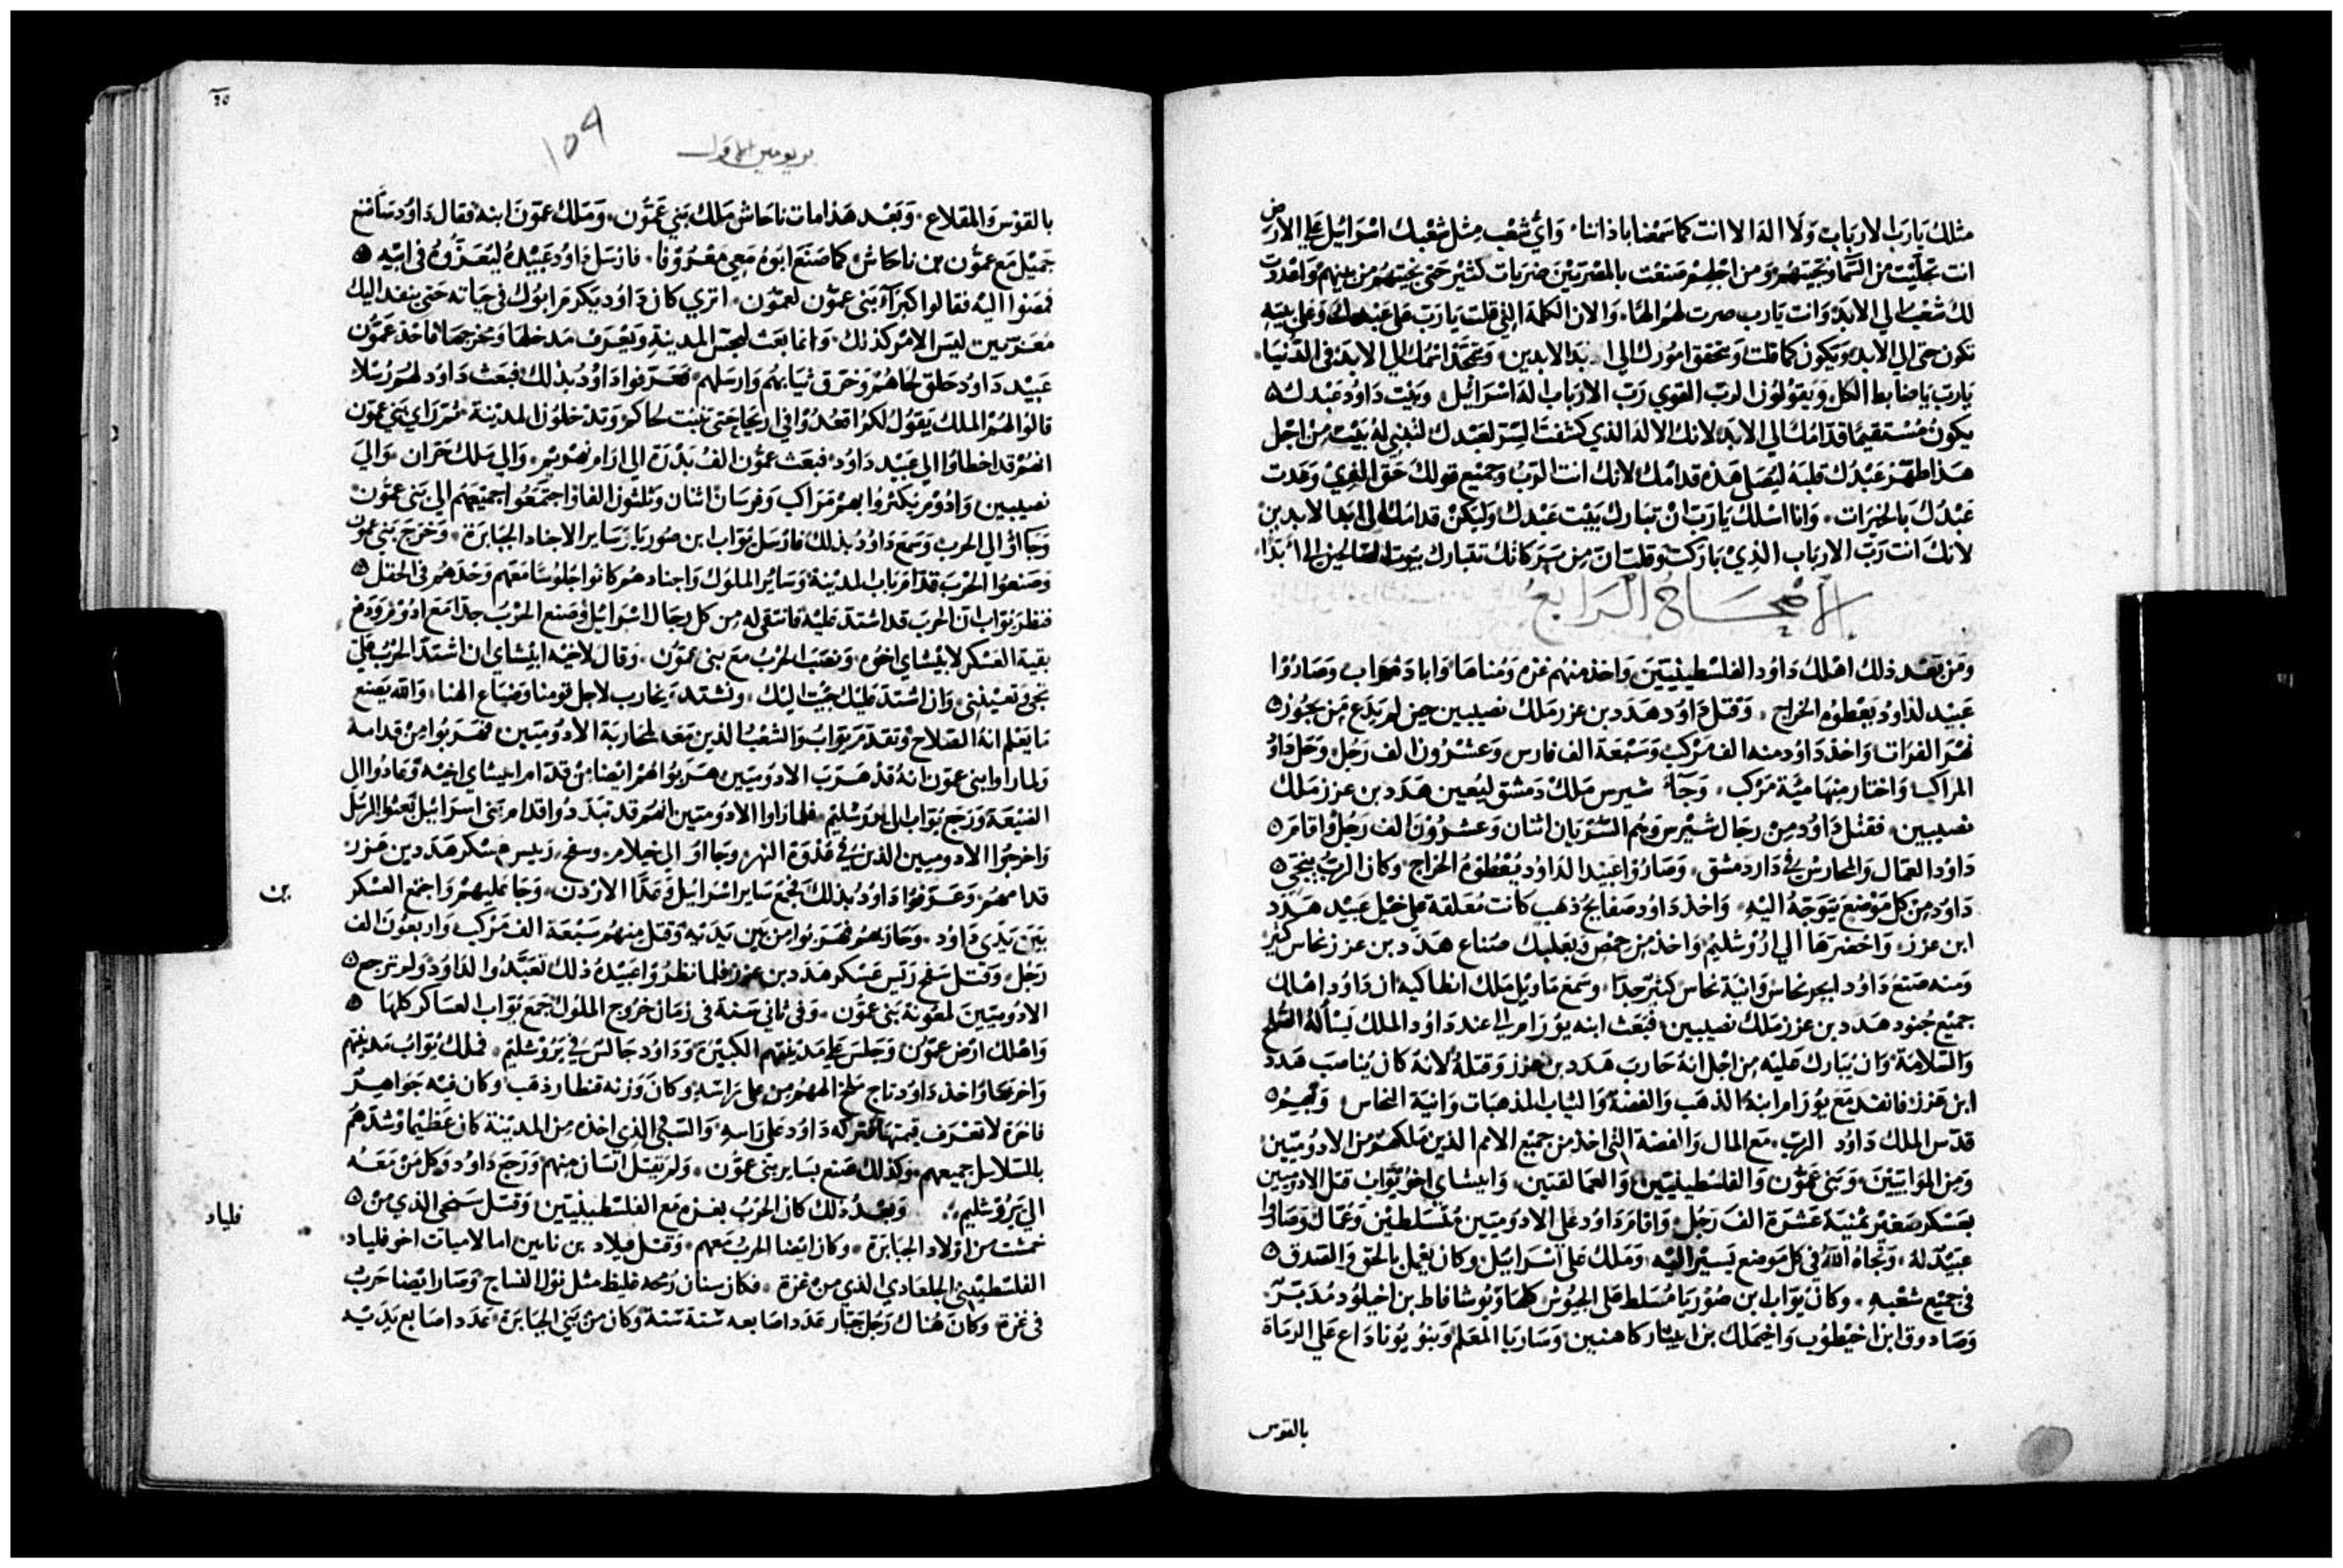 مثلك يا رب الارباب ولا اله الا انت كما سمعنا باذاننا واي شعب مثل شعبك اسرائيل علي الارض
انت تجليت من السما ونجيتهم ومن اجلهم صنعت بالمصريين ضربات كثير حتي نجيتهم من بينهم واعددت
لك شعبا الي الابد وانت يا رب صرت لهم الها والان الكلمة التي قلت يا رب علي عبدك وعلي بيته
تكون حتي الي الابد ويكون كما قلت ويتحقق امورك الي ابد الابدين ويتمجد اسمك الي الابد في الدنيا
يا رب يا ضابط الكل ويقولون الرب القوي رب الارباب اله اسرائيل وبيت داود عبدك
يكون مستقيما قدامك الي الابد لانك الاله الذي كشفت السر لعبدك لتبني له بيت من اجل
هذا طهر عبدك قلبه ليصل هذه قدامك لانك انت الرب وجميع قولك حق الذي وعدت
عبدك بالخيرات وانا اسلك يا رب ان تبارك بيت عبدك وليكن قدامك الي ابد الابدين
لانك انت رب الارباب الذي باركت وقلت ان من بركاتك تتبارك بيوت الصالحين الي الابد
الاصحاح الرابع
ومن بعد ذلك اهلك داود الفلسطينيين واخذ منهم غزه ومناها واباد مواب وصاروا
عبيد لداود يعطوه الخراج وقتل داود هدد بن عزر ملك نصيبين حين لم يدع من يجوز
نهر الفرات واخذ داود منه الف مركب وسبعة الف فارس وعشرون الف رجل وحل داود
المراكب واختار منها مئة مركب وجاء شيرس ملك دمشق ليعين هدد بن عزر ملك
نصيبين فقتل داود من رجال شيرس وهم الشريان اثنان وعشرون الف رجل واقام
داود العمال والمحارس في دار دمشق وصاروا عبيدا لداود يعطوه الخراج وكان الرب ينجي
داود من كل موضع يتوجه اليه واخذ داود صفايح ذهب كانت معلقة علي خيل عبيد هدد
ابن عزر واحضرها الي اورشليم واخذ من حمص وبعلبك صناع هدد بن عزر نحاس كثير
ومنه صنع داود ابحر نحاس وانية نحاس كثير جدا وسمع ماويل ملك انطاكيه ان داود اهلك
جميع جنود هدد بن عزر ملك نصيبين فبعث ابنه يورام الي عند داود الملك يسأله الصلح
والسلامة وان يبارك عليه من اجل انه حارب هدد بن عزر وقتله لانه كان يناصب هدد
ابن عزر فانفذ مع يورام ابنه الذهب والفضة والثياب المذهبات وانية النحاس
قدس الملك داود الرب مع المال والفضة التي اخذ من جميع الامم الذين ملكهم من الادوميين
ومن الموابيين وبني عمون والفلسطينيين والعمالقيين وابيشاي اخو يواب قتل الادوميين
بعسكر صغير ثمنية عشرة الف رجل واقام داود علي الادوميين متسلطين وعمال وصاروا
عبيد له ونجاه الله في كل موضع يسير اليه وملك علي اسرائيل وكان يعمل بالحق والصدق
في جميع شعبه وكان يواب ابن صوريا مسلط علي الجيوش كلها ويوشافاط بن اخيلود مدبر
وصادوق ابن اخيطوب واخيملك بن ابيثار كاهنين وساريا المعلم وبنو يوناداع علي الرماة
بالقوس
٢٥
١٥٩
بريومين الاول
بالقوس والمقلاع وبعد هذا مات ناحاش ملك بني عمون وملك عمون ابنه فقال داود ساصنع
جميل مع عمون بن ناحاش كما صنع ابوه معي معروفا فارسل داود عبيده ليعزوه في ابيه
فمضوا اليه فقالوا كبراء بني عمون لعمون اتري كان داود يكرم ابوك في حياته حتي ينفد اليك
معزيين ليس الامر كذلك وانما بعث ليجس المدينة ويعرف مدخلها ومخرجها فاخذ عمون
عبيد داود حلق لحاهم وخرق ثيابهم وارسلهم فعرفوا داود بذلك فبعث داود لهم رسلا
قالوا لهم الملك يقول لكم اقعدوا في اريحا حتي تنبت لحاكم وتدخلون المدينة ثم راي بني عمون
انهم قد اخطاوا الي عبيد داود فبعث عمون الف بدرة الي ارام نهريم والي ملك حران والي
نصيبين وادوم يكتروا بهم مراكب وفرسان اثنان وثلثون الفا فاجتمعوا جميعهم الي بني عمون
وجااوا الي الحرب وسمع داود بذلك فارسل يواب ابن صوريا وساير الاجناد الجبابرة وخرج بني عمون
وصنعوا الحرب قدام باب المدينة وساير الملوك واجنادهم كانوا جلوسا معهم وحدهم في الحقل
فنظر يواب ان الحرب قد اشتد عليه فانتقي له من كل رجال اسرائيل وصنع الحرب جدا مع ادوم ودفع
بقية العسكر لابيشاي اخوه ونصب الحرب مع بني عمون وقال لاخيه ابيشاي ان اشتد الحرب علي
تجي وتعينني وان اشتد عليك جيت اليك ونشتد ويحارب لاجل قومنا وضياع الهنا والله يصنع
ما يعلم انه الصلاح وتقدم يواب والشعب الذين معه لمحاربة الادوميين فهربوا من قدامه
ولما راوا بني عمون انه قد هرب الادوميين هربوا هم ايضا من قدام ابيشاي اخيه وعادوا الي
الضيعة ورجع يواب الي يروشليم فلما راوا الادوميين انهم قد تبددوا قدام بني اسرائيل بعثوا الرسل
واخرجوا الادوميين الذين في عدوة النهر وجااوا الي خيلام وسفح رييس عسكر هدد بن عزر
قدامهم وعرفوا داود بذلك فجمع ساير اسرائيل وعدا الاردن وجا عليهم واجتمع العسكر
بن
بين يدي داود وحاربهم فهربوا من بين يديه وقتل منهم سبعة الف مركب واربعون الف
رجل وقتل سفح رييس عسكر هدد بن عزر فلما نظروا عبيده ذلك تعبدوا لداود ولم ترجع
الادوميين لمعونة بني عمون وفي ثاني سنة في زمان خروج الملوك جمع يواب العساكر كلها
واهلك ارض عمون وجلس علي مدينتهم الكبيرة وداود جالس في يروشليم فملك يواب مدينتهم
واخربها واخذ داود تاج ملخ الههم من علي راسه وكان وزنه قنطار ذهب وكان فيه جواهر
فاخرة لا تعرف قيمتها فتركه داود علي راسه والسبي الذي اخذه من المدينة كان عظيما وشدهم
بالسلاسل جميعهم وكذلك صنع بساير بني عمون ولم يقتل انسان منهم ورجع داود وكل من معه
الي يروشليم وبعد ذلك كان الحرب بغزه مع الفلسطينيين وقتل سخي الذي من
فلياد
خمشت من اولاد الجبابرة وكان ايضا الحرب معهم وقتل فيلاد بن ناسن امالاميات اخو فلياد
الفلسطيني الجلعادي الذي من غزة فكان سنان رمحه غليظ مثل نول النساج وصار ايضا حرب
في غزة وكان هناك رجل جبار عدد اصابعه ستة ستة وكان من بني الجبابرة عدد اصابع يديه